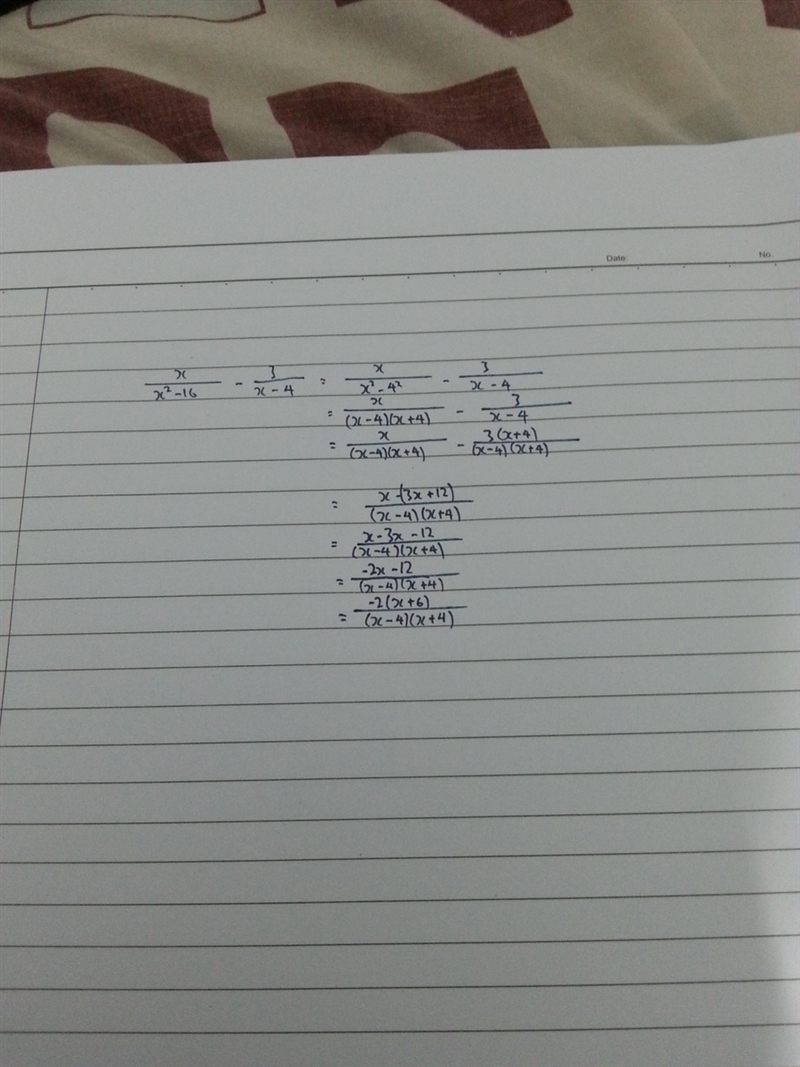 Date: No.
x/(x²-16) - 3/(x-4) = x/(x²-4²) - 3/(x-4)
= x/((x-4)(x+4)) - 3/(x-4)
= x/((x-4)(x+4)) - 3(x+4)/((x-4)(x+4))
= (x-(3x+12))/((x-4)(x+4))
= (x-3x-12)/((x-4)(x+4))
= (-2x-12)/((x-4)(x+4))
= -2(x+6)/((x-4)(x+4))